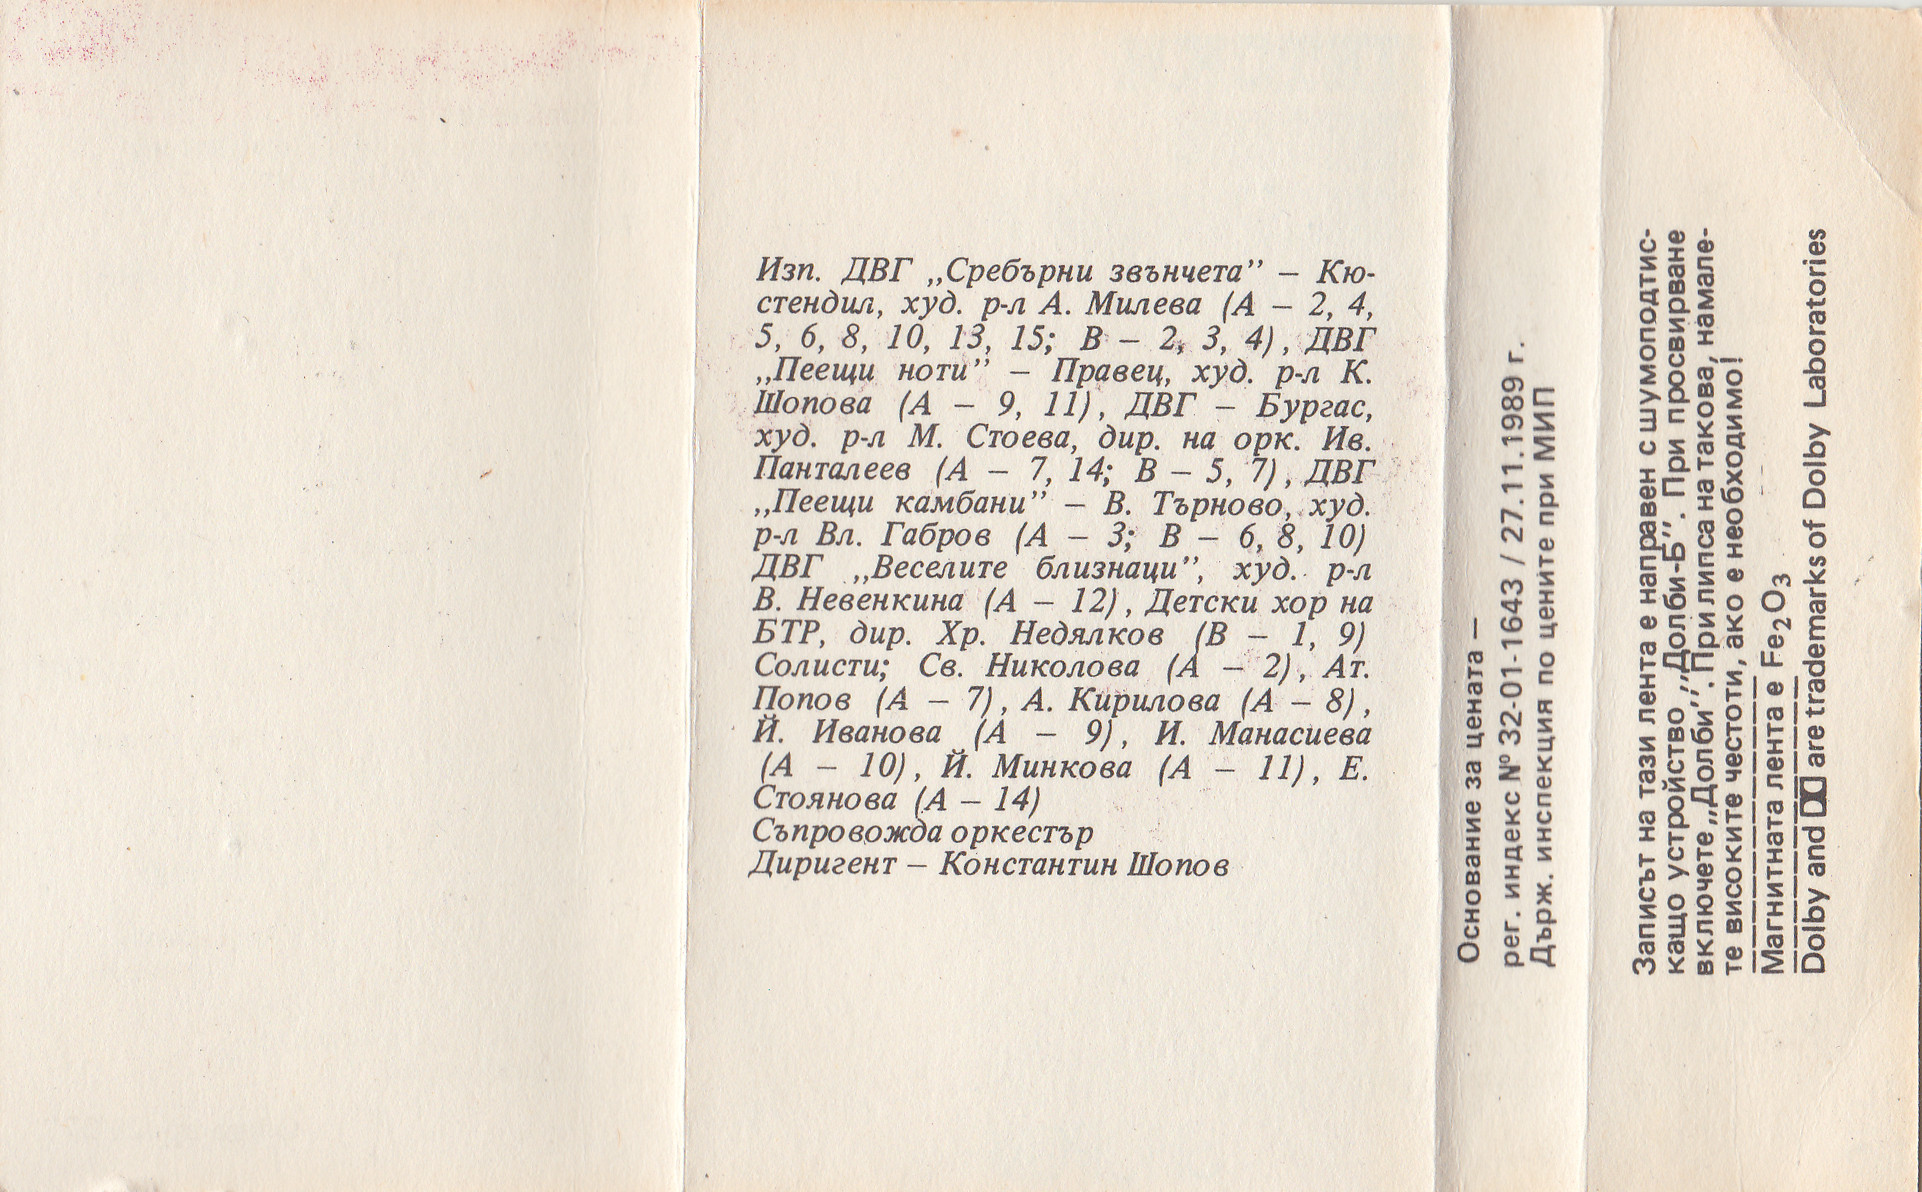 Изп. ДВГ „Сребърни звънчета” – Кю-
стендил, худ. р-л А. Милева (А – 2, 4,
5, 6, 8, 10, 13, 15; В – 2, 3, 4), ДВГ
„Пеещи ноти” – Правец, худ. р-л К.
Шопова (А – 9, 11), ДВГ – Бургас,
худ. р-л М. Стоева, дир. на орк. Ив.
Панталеев (А – 7, 14; В – 5, 7), ДВГ
„Пеещи камбани” – В. Търново, худ.
р-л Вл. Габров (А – 3; В – 6, 8, 10)
ДВГ „Веселите близнаци”, худ. р-л
В. Невенкина (А – 12), Детски хор на
БТР, дир. Хр. Недялков (В – 1, 9)
Солисти; Св. Николова (А – 2), Ат.
Попов (А – 7), А. Кирилова (А – 8),
Й. Иванова (А – 9), И. Манасиева
(А – 10), Й. Минкова (А – 11), Е.
Стоянова (А – 14)
Съпровожда оркестър
Диригент – Константин Шопов
Основание за цената –
рег. индекс № 32-01-1643 / 27.11.1989 г.
Държ. инспекция по цените при МИП
Записът на тази лента е направен с шумоподтис-
кащо устройство „Долби-Б”. При просвирване
включете „Долби”. При липса на такова, намале-
те високите честоти, ако е необходимо!
Магнитната лента е Fe2O3
Dolby and are trademarks of Dolby Laboratories